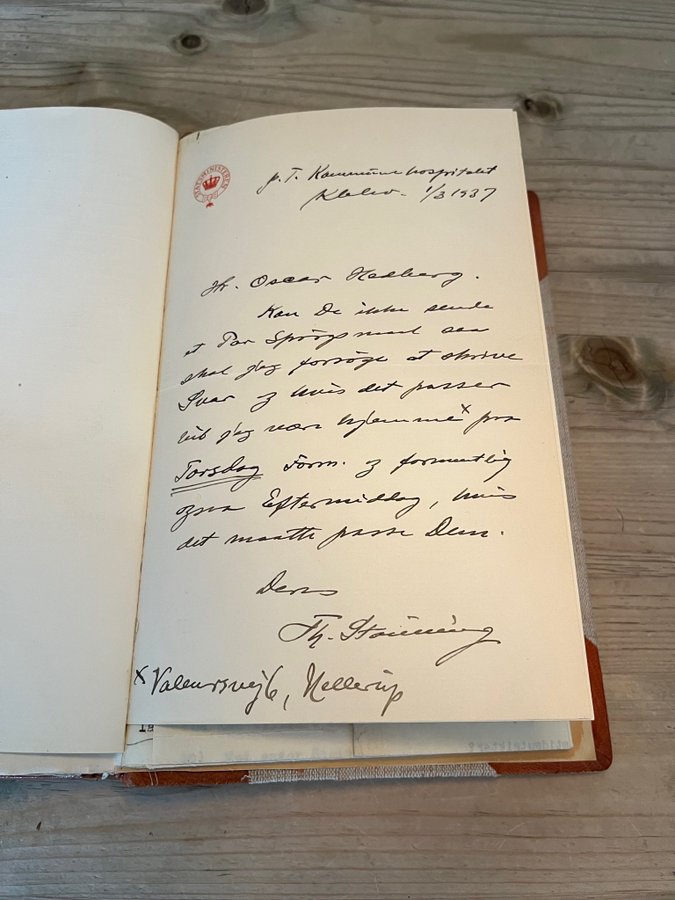 STATSMINISTERIET
p. T. Kommunehospitalet
Kbhvn. 1/3 1937
Hr. Oscar Hedberg.
Kan De ikke sende
et Par Spörgsmaal saa
skal jeg forsöge at skrive
Svar og hvis det passer
vil jeg være hjemme x paa
Torsdag Form. og formentlig
ogsaa Eftermiddag, hvis
det maatte passe Dem.
Deres
Th. Stauning
x Valeursvej 6, Hellerup